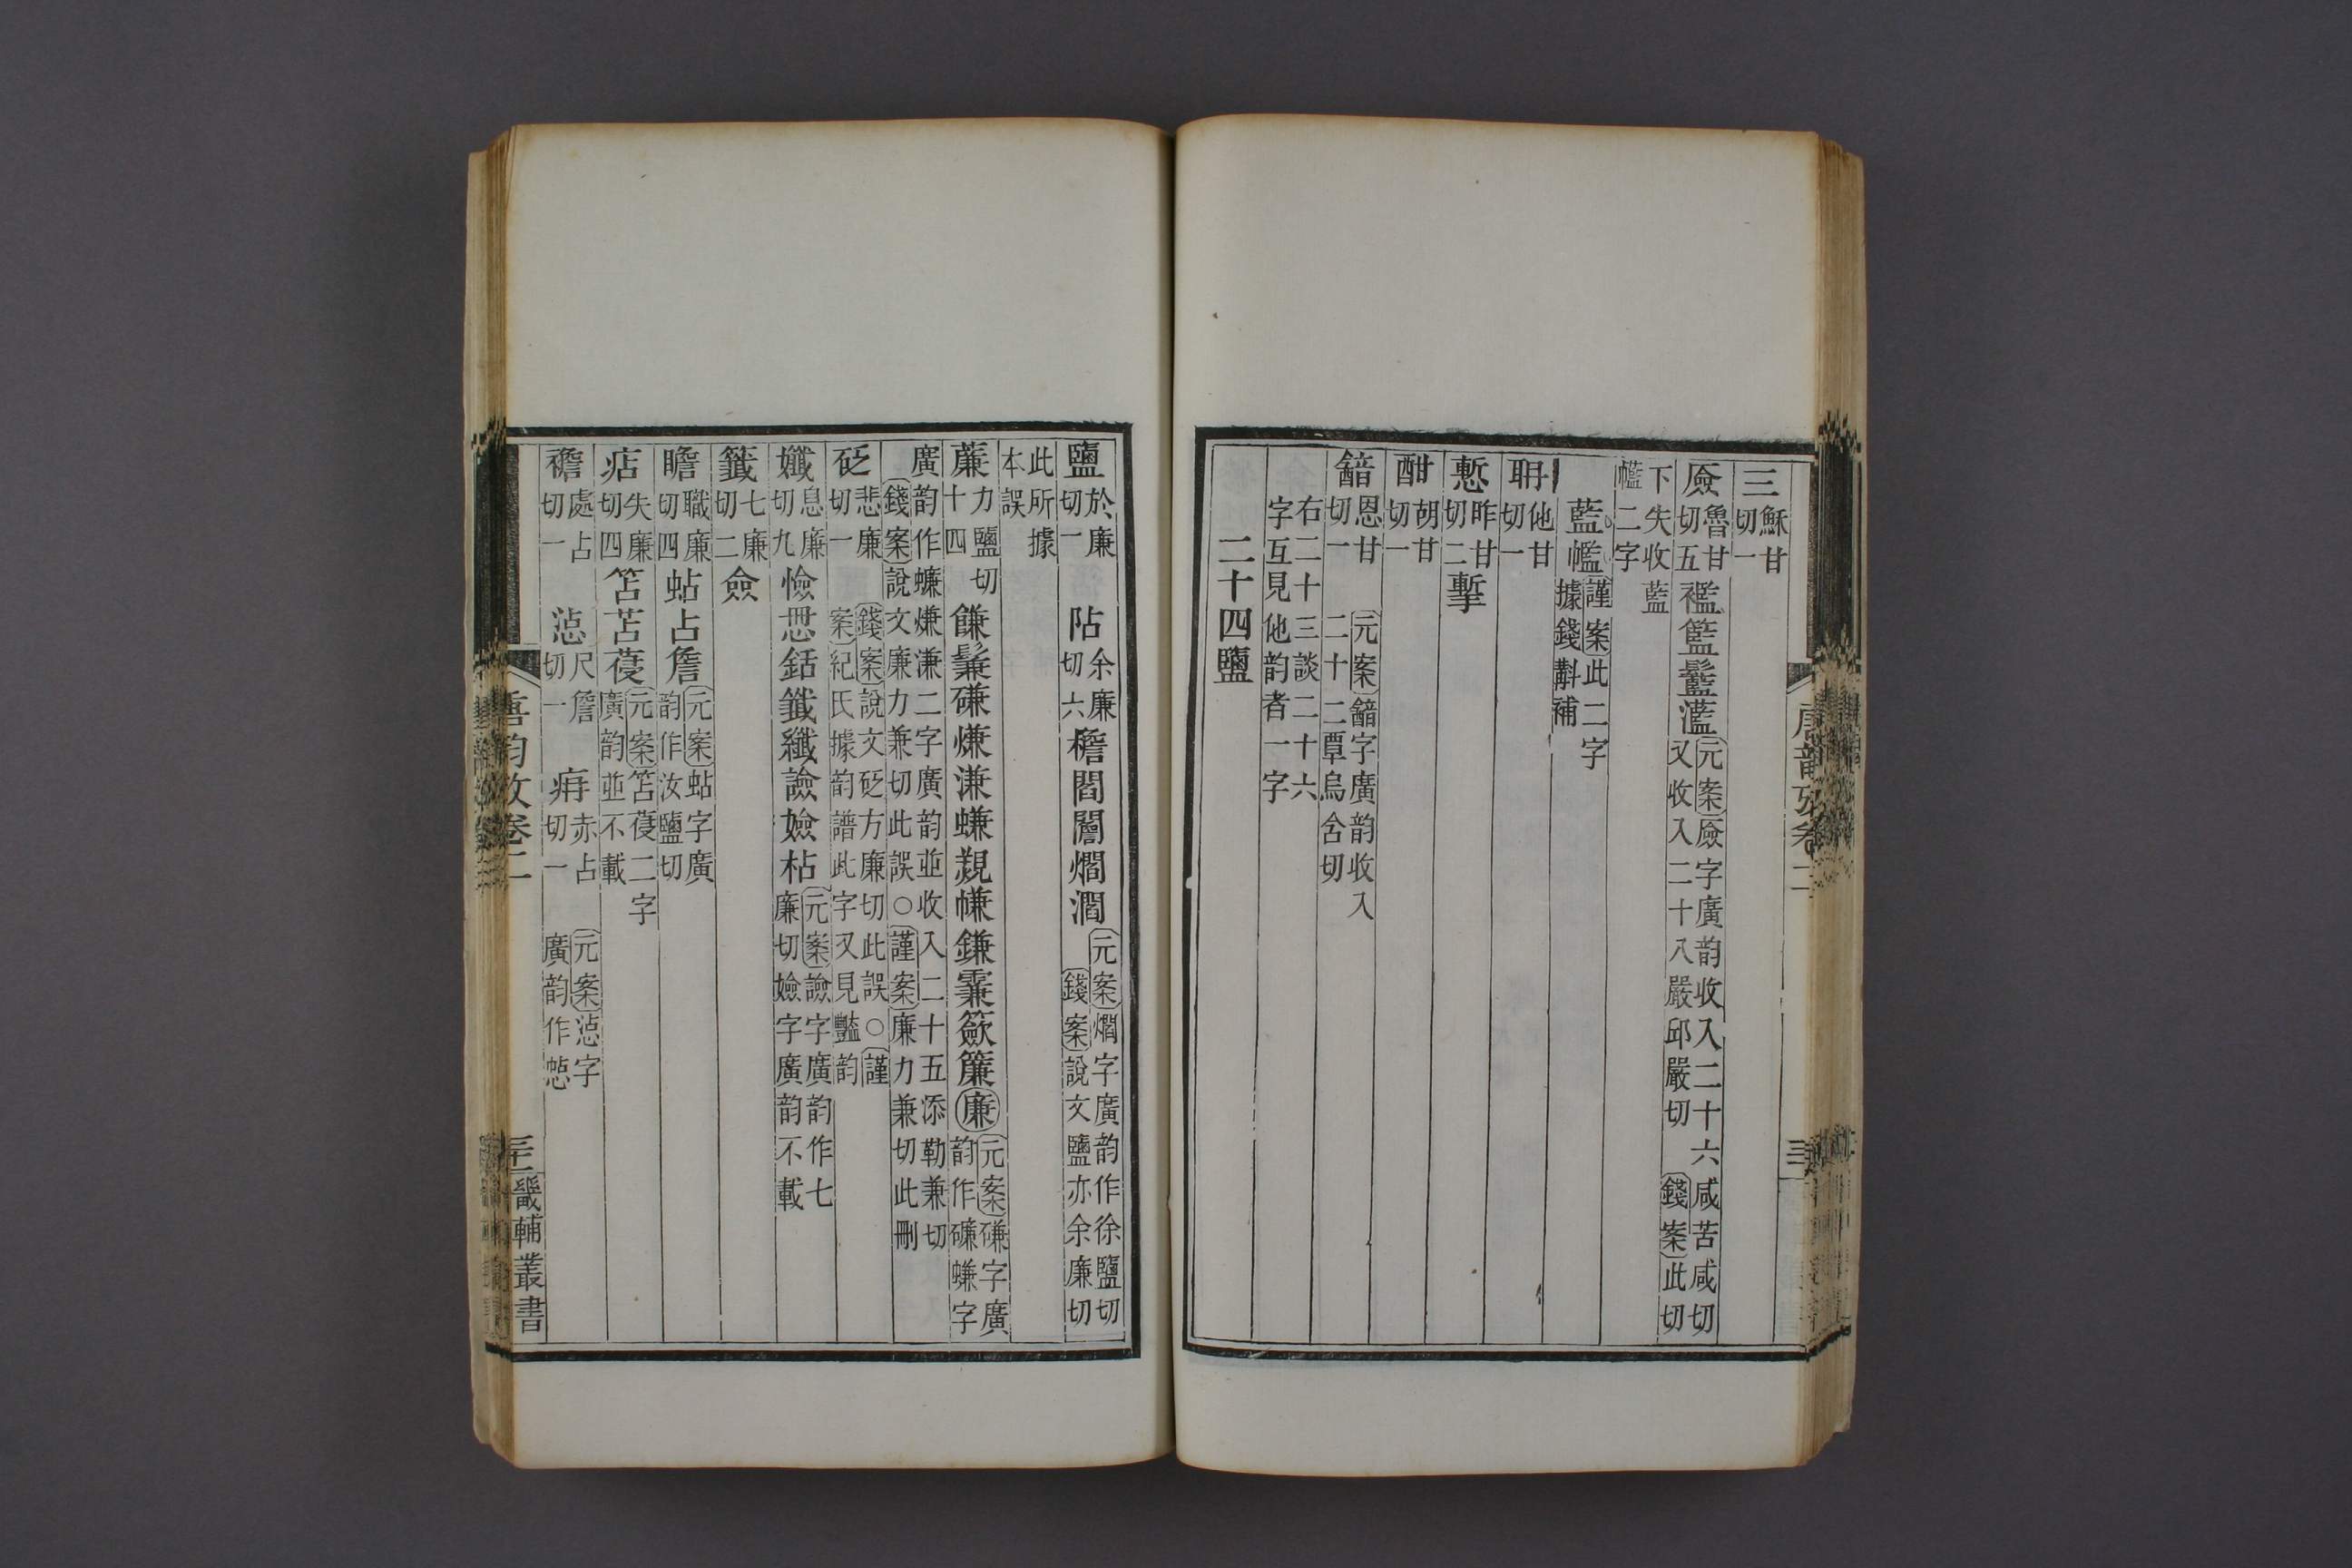 三穌甘切一
㕒魯甘切五襤籃鬛灆元案㕒字廣韵收入二十六咸苦咸切又收入二十八嚴邱嚴切錢案此切
下失收藍㡵二字
藍㡵謹案此二字據錢斠補
聃他甘切一
慙昨甘切二塹
酣胡甘切一
韽恩甘切一元案韽字廣韵收入二十二覃烏含切
右二十三談二十六字互見他韵者一字
二十四鹽
鹽於廉切一阽余廉切六檐閻讇爓瀾元案爓字廣韵作徐鹽切錢案說文鹽亦余廉切
此所據本誤
薕力鹽切十四䭑鬑磏熑溓蠊覝㡘鎌霥籨簾廉元案磏字廣韵作礦蠊字
廣韵作蠊熑溓二字廣韵並收入二十五添勒兼切錢案說文廉力兼切此誤○謹案廉力兼切此刪
砭悲廉切一錢案說文砭方廉切此誤○謹案紀氏據韵譜此字又見豔韵
孅息廉切九憸思銛籤纖譣嬐枮元案譣字廣韵作七廉切嬐字廣韵不載
籤七廉切二僉
瞻職廉切四蛅占詹元案蛅字廣韵作汝鹽切
痁失廉切四笘苫葠元案笘葠二字廣韵並不載
襜處占切一惉尺詹切一痈赤占切一元案惉字廣韵作㦓
唐韵攷卷二
三十一
畿輔叢書